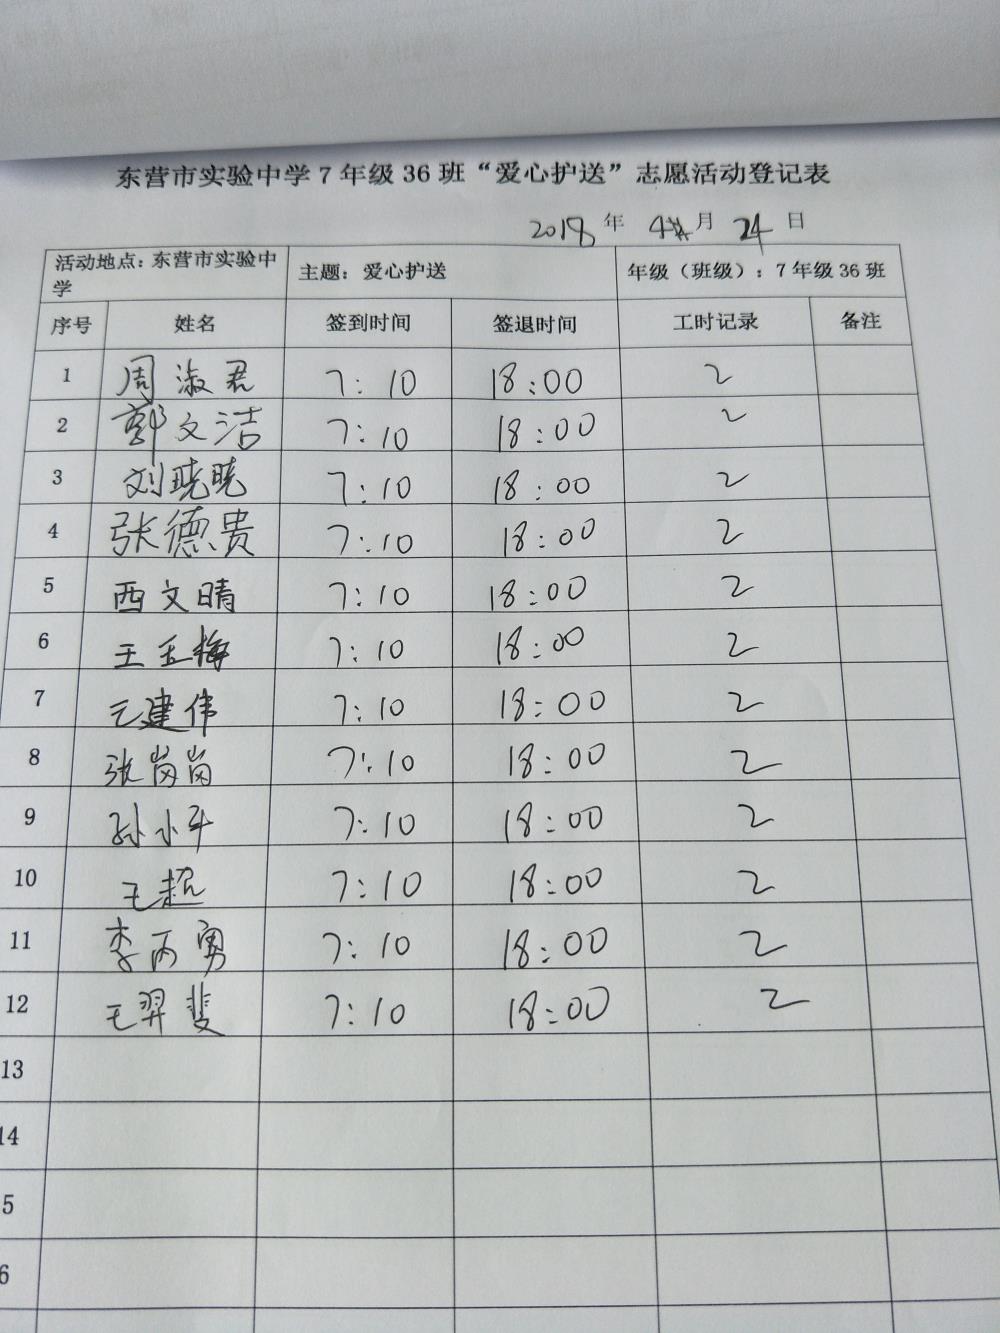 东营市实验中学7年级36班“爱心护送”志愿活动登记表
2018年 4月 24日
活动地点：东营市实验中学 主题：爱心护送 年级（班级）：7年级36班
序号 姓名 签到时间 签退时间 工时记录 备注
1 周淑君 7:10 18:00 2
2 郭文洁 7:10 18:00 2
3 刘晓晓 7:10 18:00 2
4 张德贵 7:10 18:00 2
5 西文晴 7:10 18:00 2
6 王玉梅 7:10 18:00 2
7 王建伟 7:10 18:00 2
8 张岗岗 7:10 18:00 2
9 孙小平 7:10 18:00 2
10 王超 7:10 18:00 2
11 李丙勇 7:10 18:00 2
12 王羿斐 7:10 18:00 2
13
14
5
6